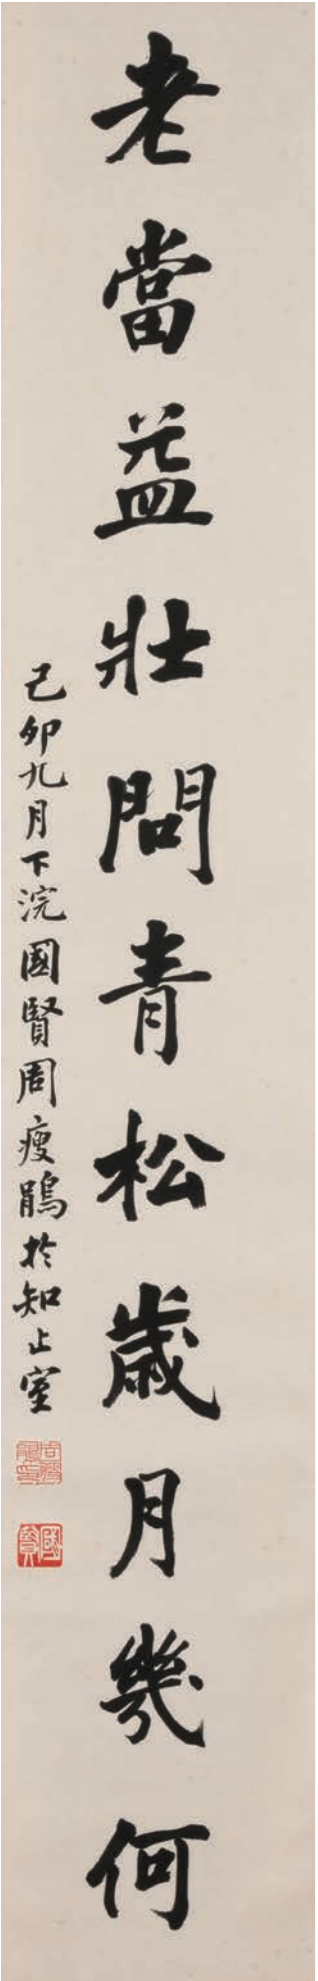 老當益壯問青松歲月幾何
己卯九月下浣國賢周瘦鵑於知止室
周瘦鵑印
國賢